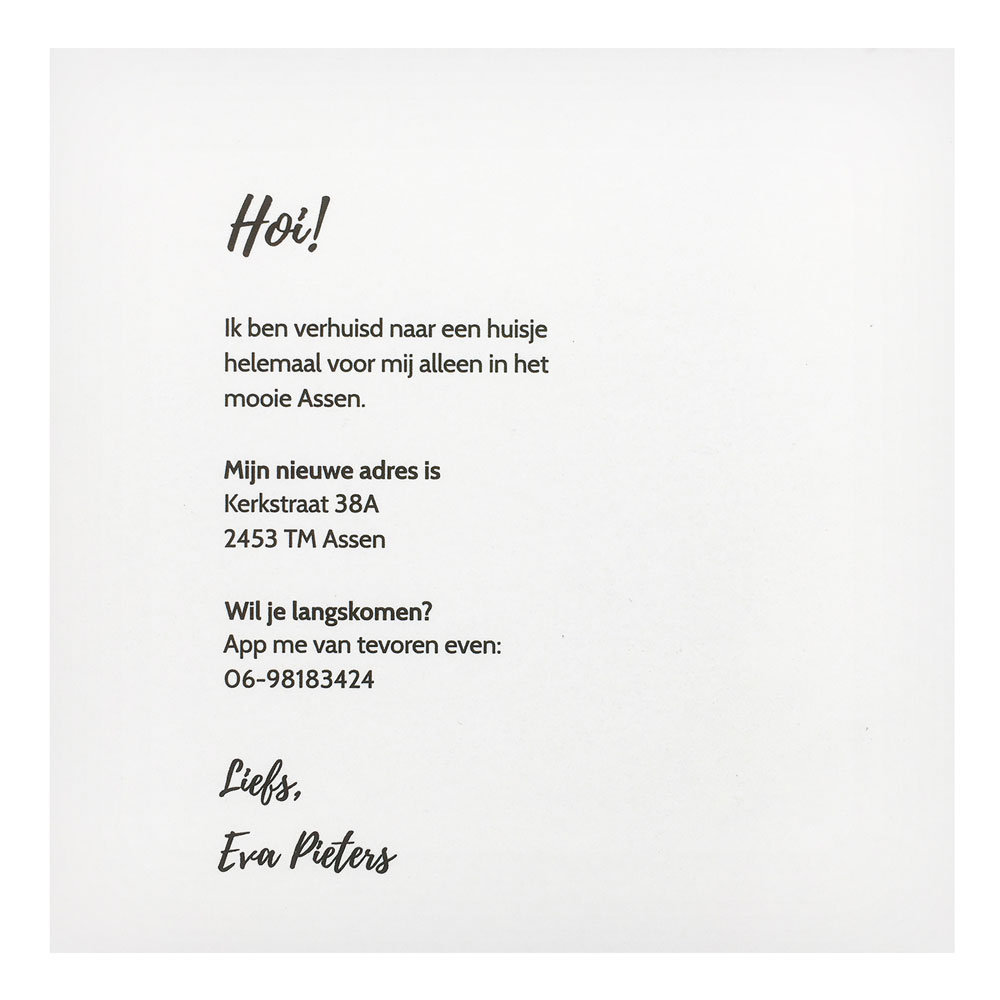 Hoi!
Ik ben verhuisd naar een huisje
helemaal voor mij alleen in het
mooie Assen.
Mijn nieuwe adres is
Kerkstraat 38A
2453 TM Assen
Wil je langskomen?
App me van tevoren even:
06-98183424
Liefs,
Eva Pieters